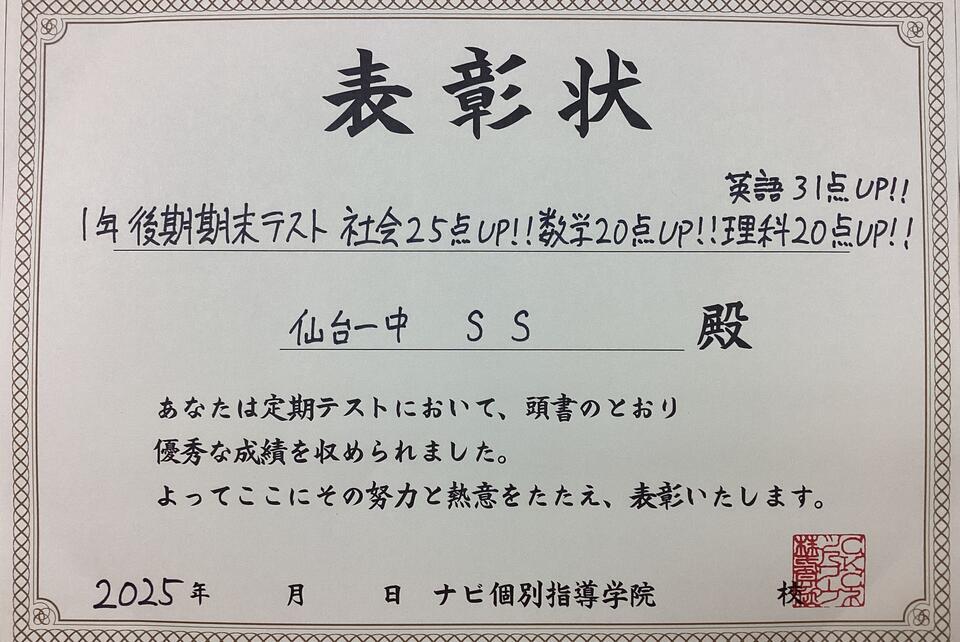 表彰状
英語31点UP!!
1年後期期末テスト 社会25点UP!!数学20点UP!!理科20点UP!!
仙台一中 S S 殿
あなたは定期テストにおいて、頭書のとおり
優秀な成績を収められました。
よってここにその努力と熱意をたたえ、表彰いたします。
2025年 月 日 ナビ個別指導学院 校